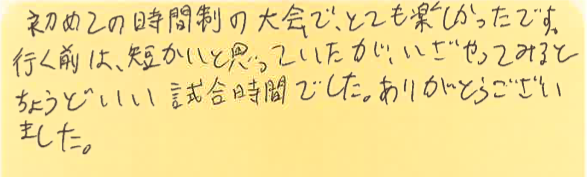 初めての時間制の大会で、とても楽しかったです。
行く前は、短かいと思っていたが、いざやってみると
ちょうどいい試合時間でした。ありがとうござい
ました。